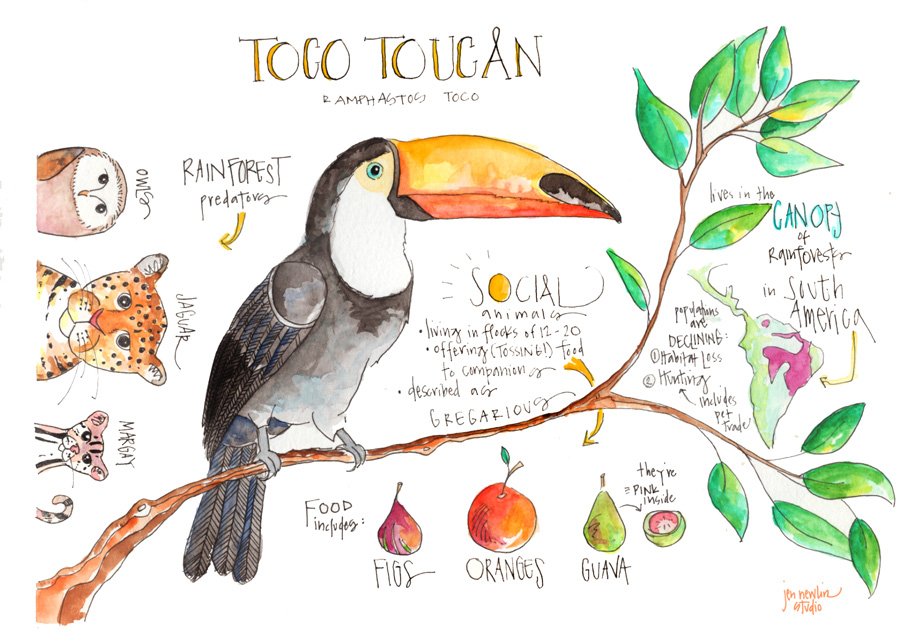 TOCO TOUCAN
RAMPHASTOS TOCO
RAINFOREST
predators
OWLS
JAGUAR
MARGAY
SOCIAL
animals
• living in flocks of 12-20
• offering (TOSSING!) food
to companions
• described as
GREGARIOUS
lives in the
CANOPY
of
Rainforests
in South
America
populations
are
DECLINING:
① Habitat Loss
② Hunting
includes
pet
trade
FOOD
includes:
FIGS
ORANGES
GUAVA
they're
PINK
inside
jen newlin
studio